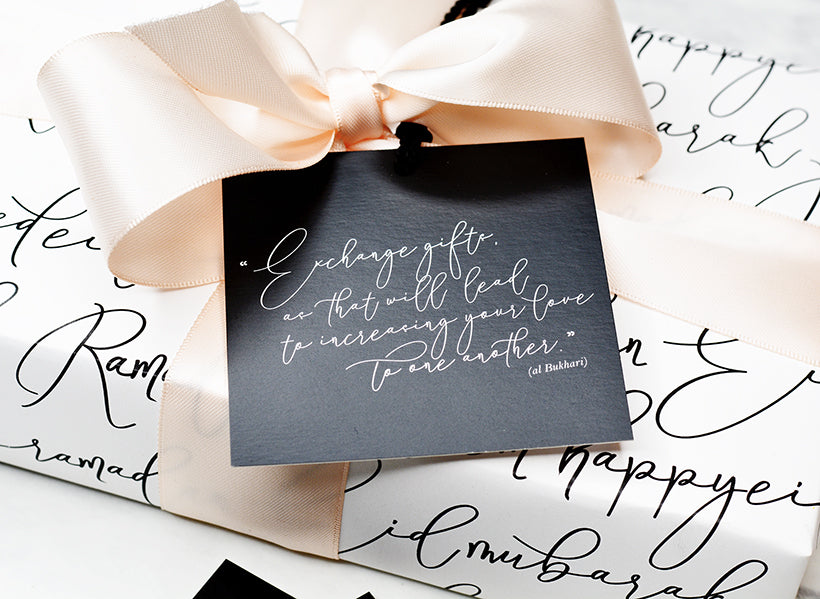 happye
barak
“Exchange gifts,
as that will lead
to increasing your love
to one another.”
(al Bukhari)
Ram
ramad
happyei
idmubarak